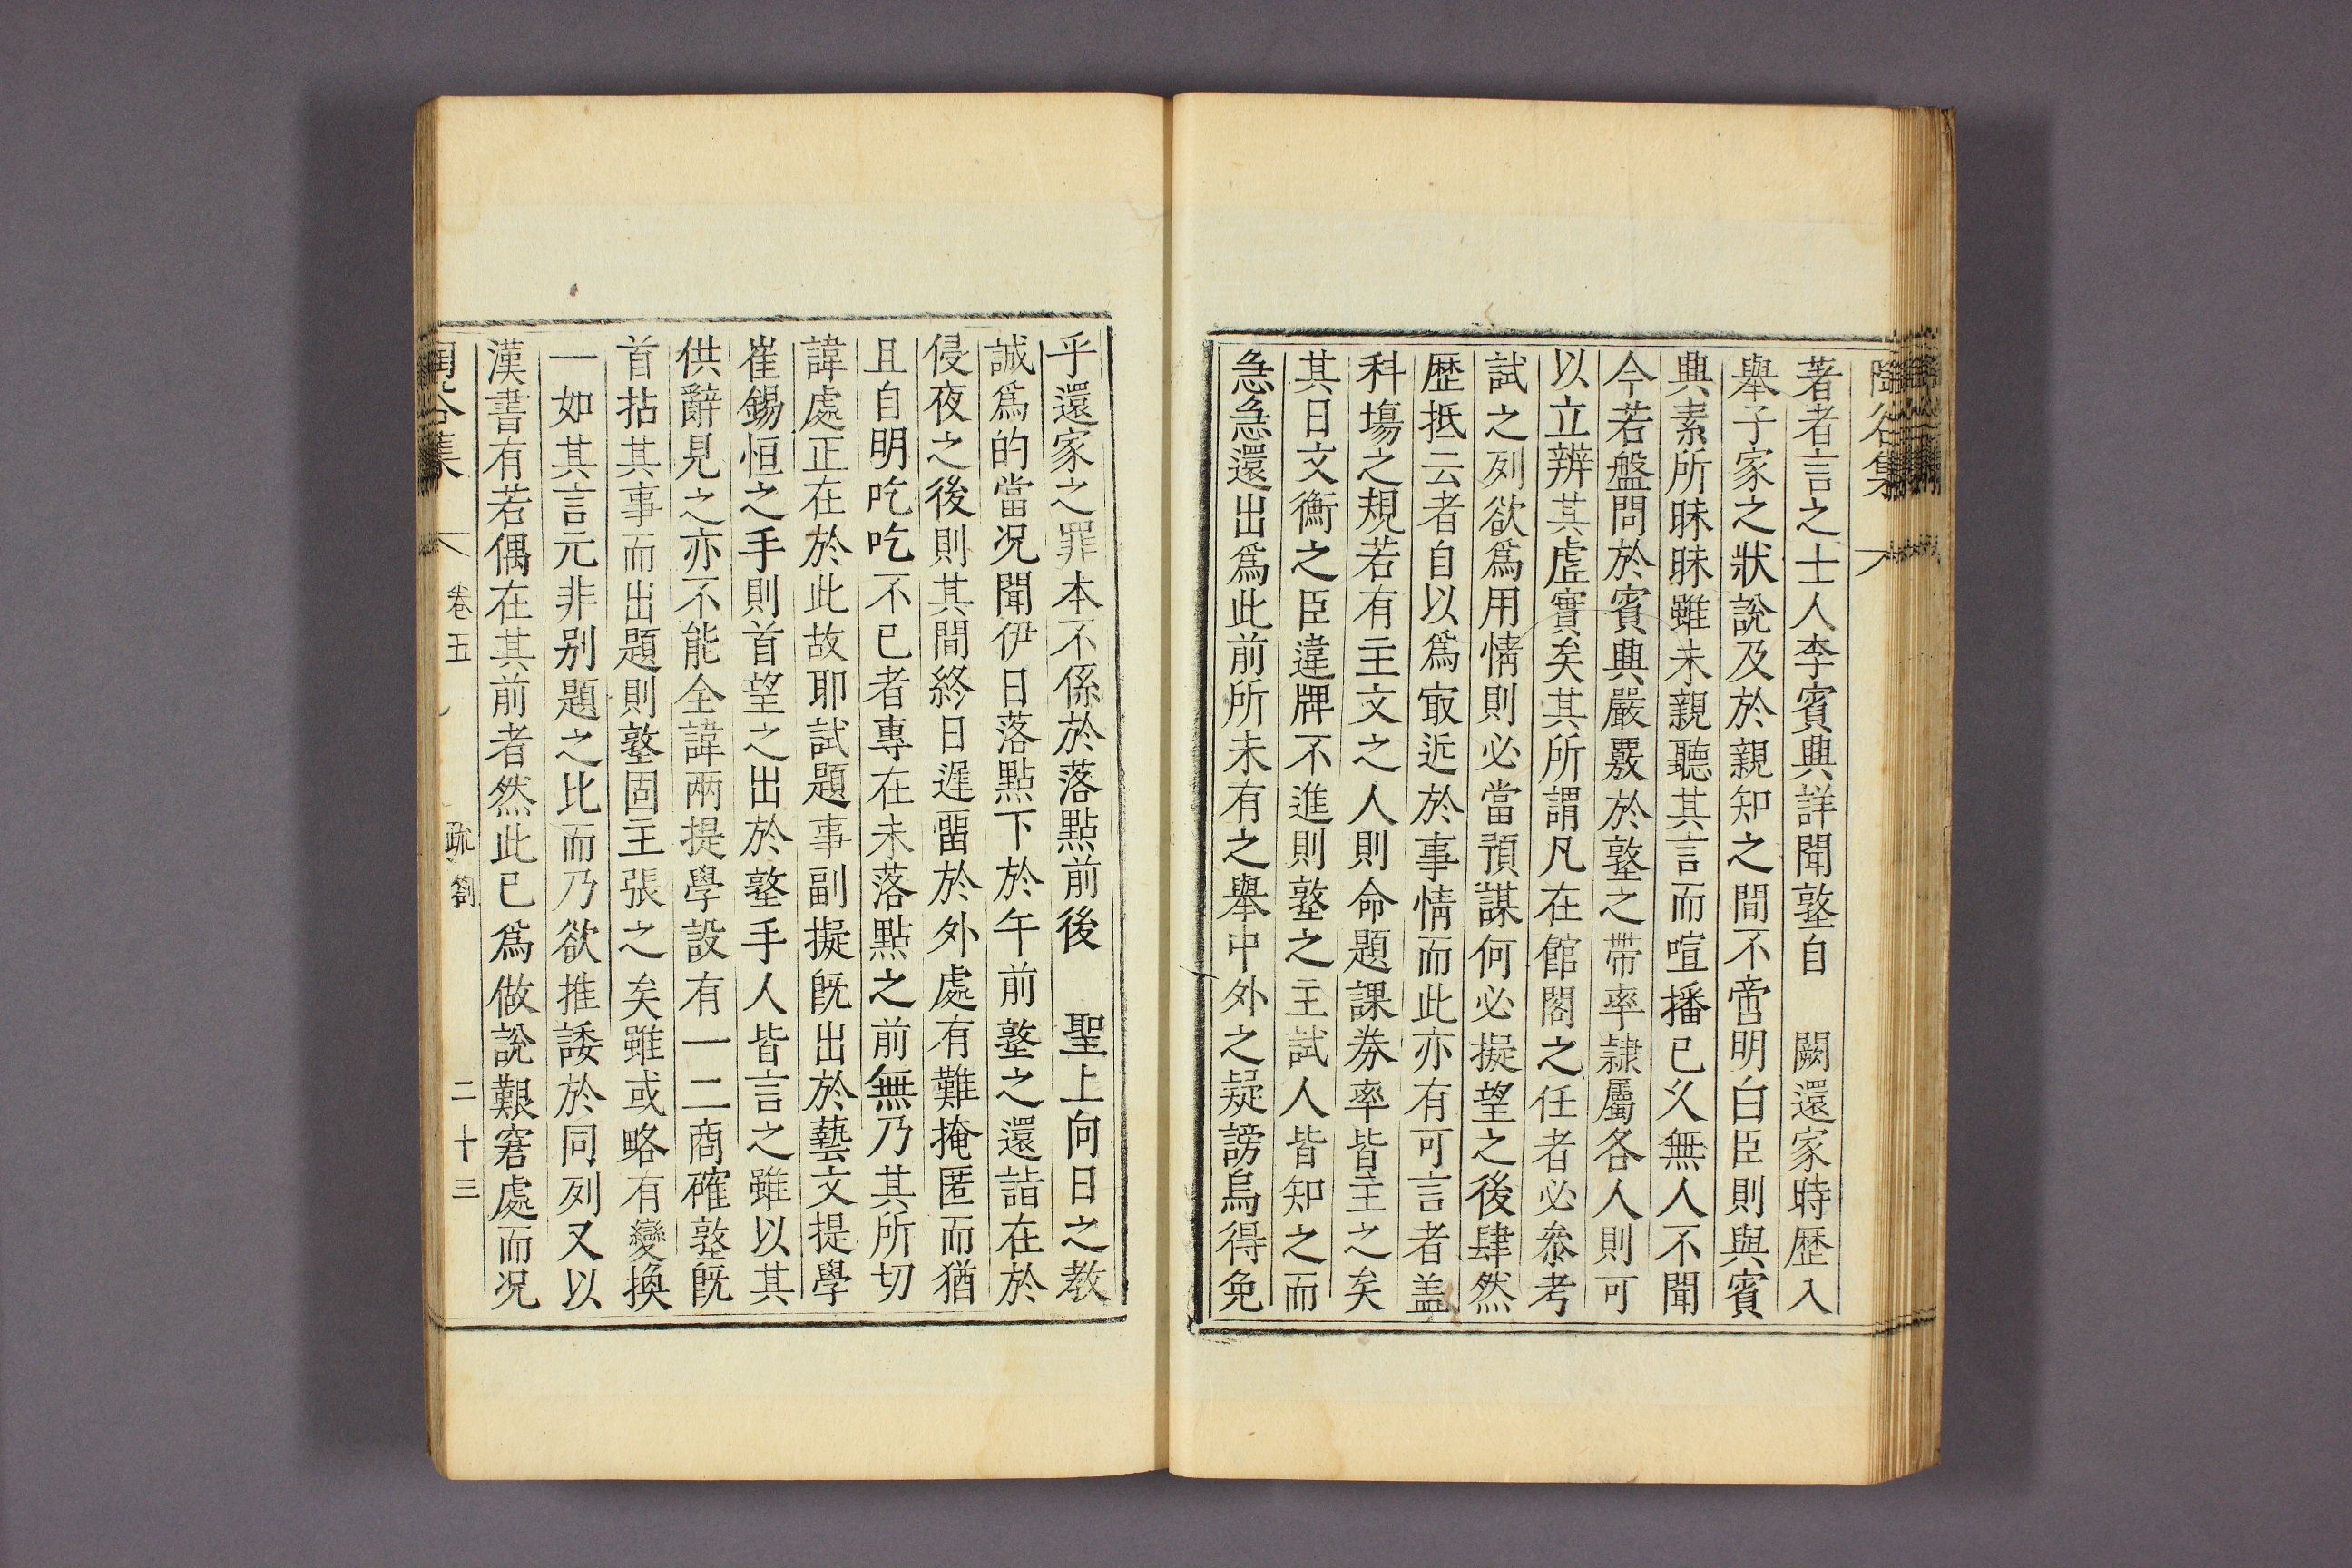 陶谷集
著者言之士人李賓典詳聞墪自　闕還家時歷入
舉子家之狀說及於親知之間不啻明白臣則與賓
典素所昧昧雖未親聽其言而喧播已久無人不聞
今若盤問於賓典嚴覈於墪之帶率隷屬各人則可
以立辨其虛實矣其所謂凡在館閣之任者必叅考
試之列欲爲用情則必當預謀何必擬望之後肆然
歷抵云者自以爲㝡近於事情而此亦有可言者盖
科塲之規若有主文之人則命題課券率皆主之矣
其日文衡之臣違牌不進則墪之主試人皆知之而
急急還出爲此前所未有之舉中外之疑謗烏得免
乎還家之罪本不係於落點前後　聖上向日之教
誠爲的當况聞伊日落點下於午前墪之還詣在於
侵夜之後則其間終日遲留於外處有難掩匿而猶
且自明吃吃不已者專在未落點之前無乃其所切
諱處正在於此故耶試題事副擬旣出於藝文提學
崔錫恒之手則首望之出於墪手人皆言之雖以其
供辭見之亦不能全諱兩提學設有一二商確墪旣
首拈其事而出題則墪固主張之矣雖或略有變換
一如其言元非别題之比而乃欲推諉於同列又以
漢書有若偶在其前者然此已爲做說艱窘處而况
陶谷集　卷五　疏劄　二十三